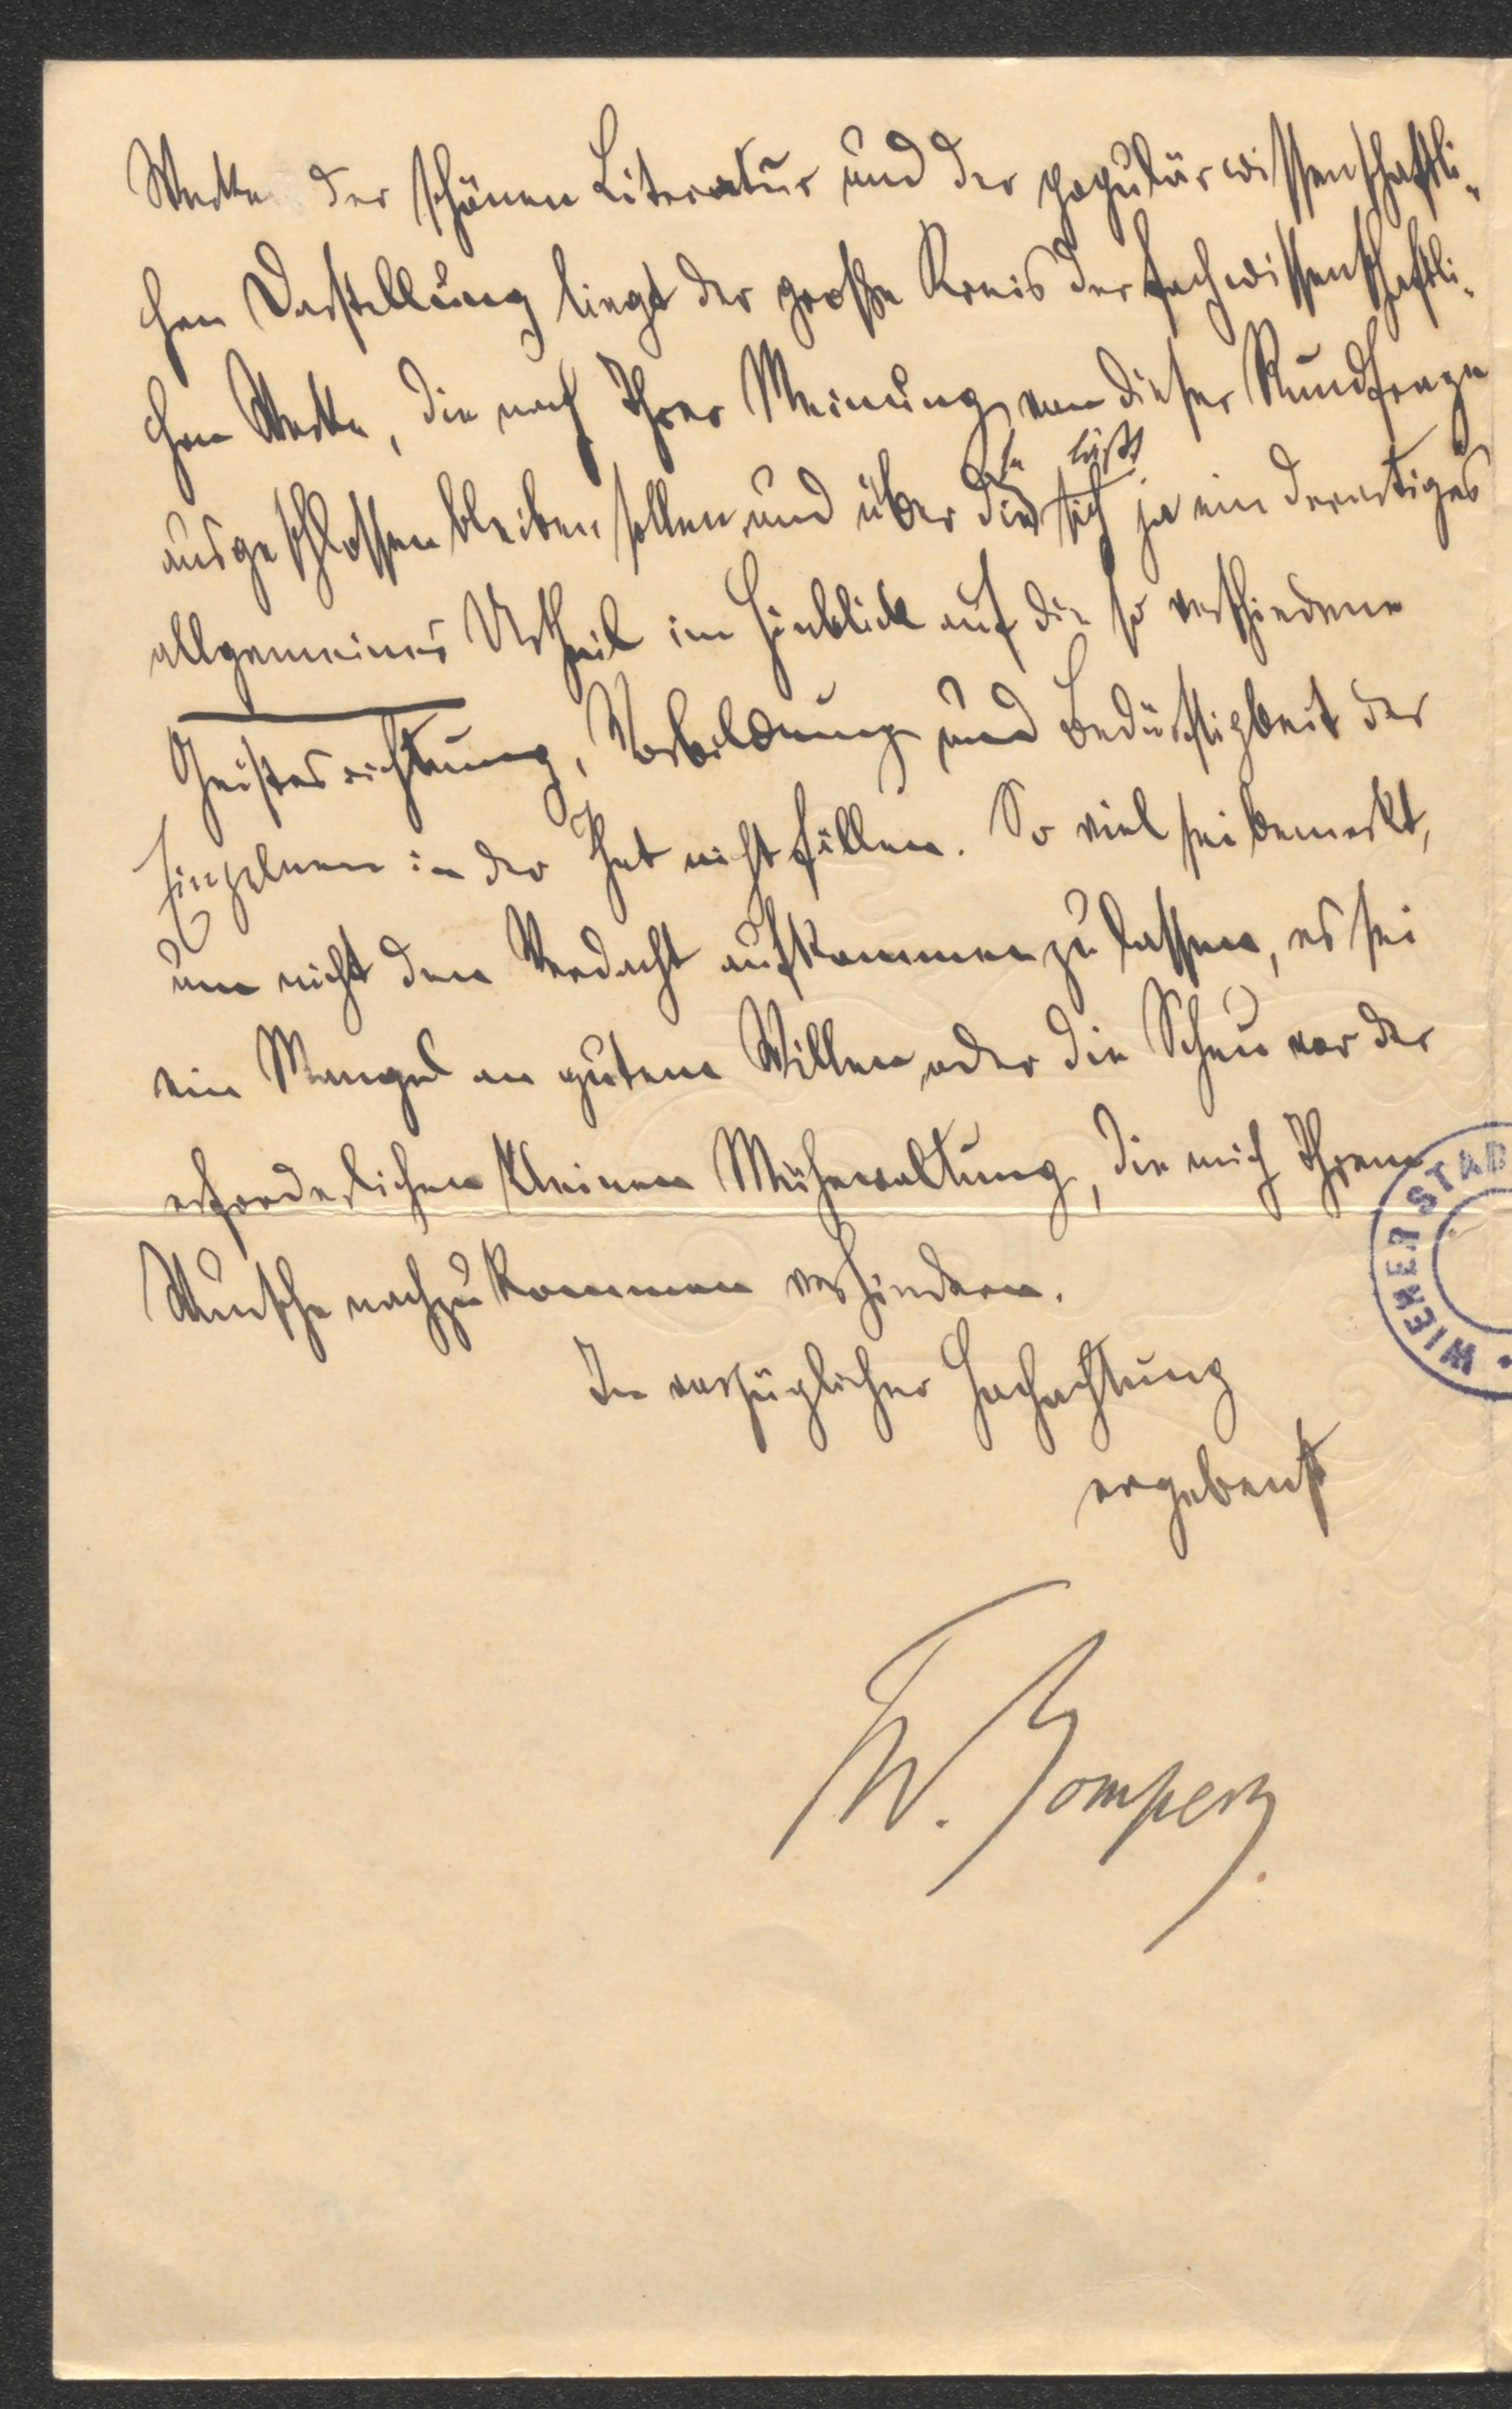 Werke der schönen Literatur und der populärwissenschaftli-
chen Darstellung liegt der große Kreis der fachwissenschaftli-
chen Werke, die nach Ihrer Meinung von dieser Rundfrage
se läßt
ausgeschlossen bleiben sollen, und über die sich ja ein derartiges
allgemeines Urtheil im Hinblick auf die so verschiedene
Geistesrichtung, Vorbildung und Bedürftigkeit der
Einzelnen in der That nicht fällen. So viel sei bemerkt,
um nicht den Verdacht aufkommen zu lassen, es sei
ein Mangel an gutem Willen oder die Scheu vor der
erforderlichen kleinen Mühewaltung, die mich Ihrem
Wunsche nachzukommen verhindern.
In vorzüglicher Hochachtung
ergebenst
Th. Gomperz
WIENER STAD